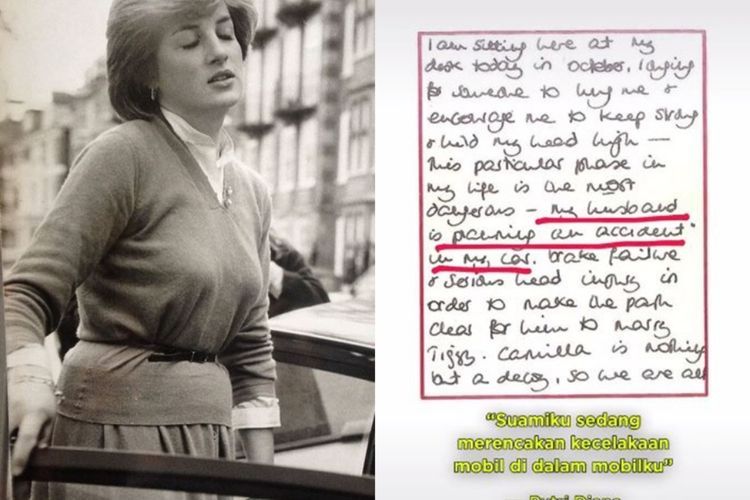 I am sitting here at my
desk today in october, longing
for someone to hug me &
encourage me to keep strong
& hold my head high —
This particular phase in
my life is the most
dangerous - my husband
is planning an accident"
in my car. brake failure
& serious head injury in
order to make the path
clear for him to marry
Tiggy. Camilla is nothing
but a decoy, so we are all
"Suamiku sedang
merencakan kecelakaan
mobil di dalam mobilku"
Putri Diana